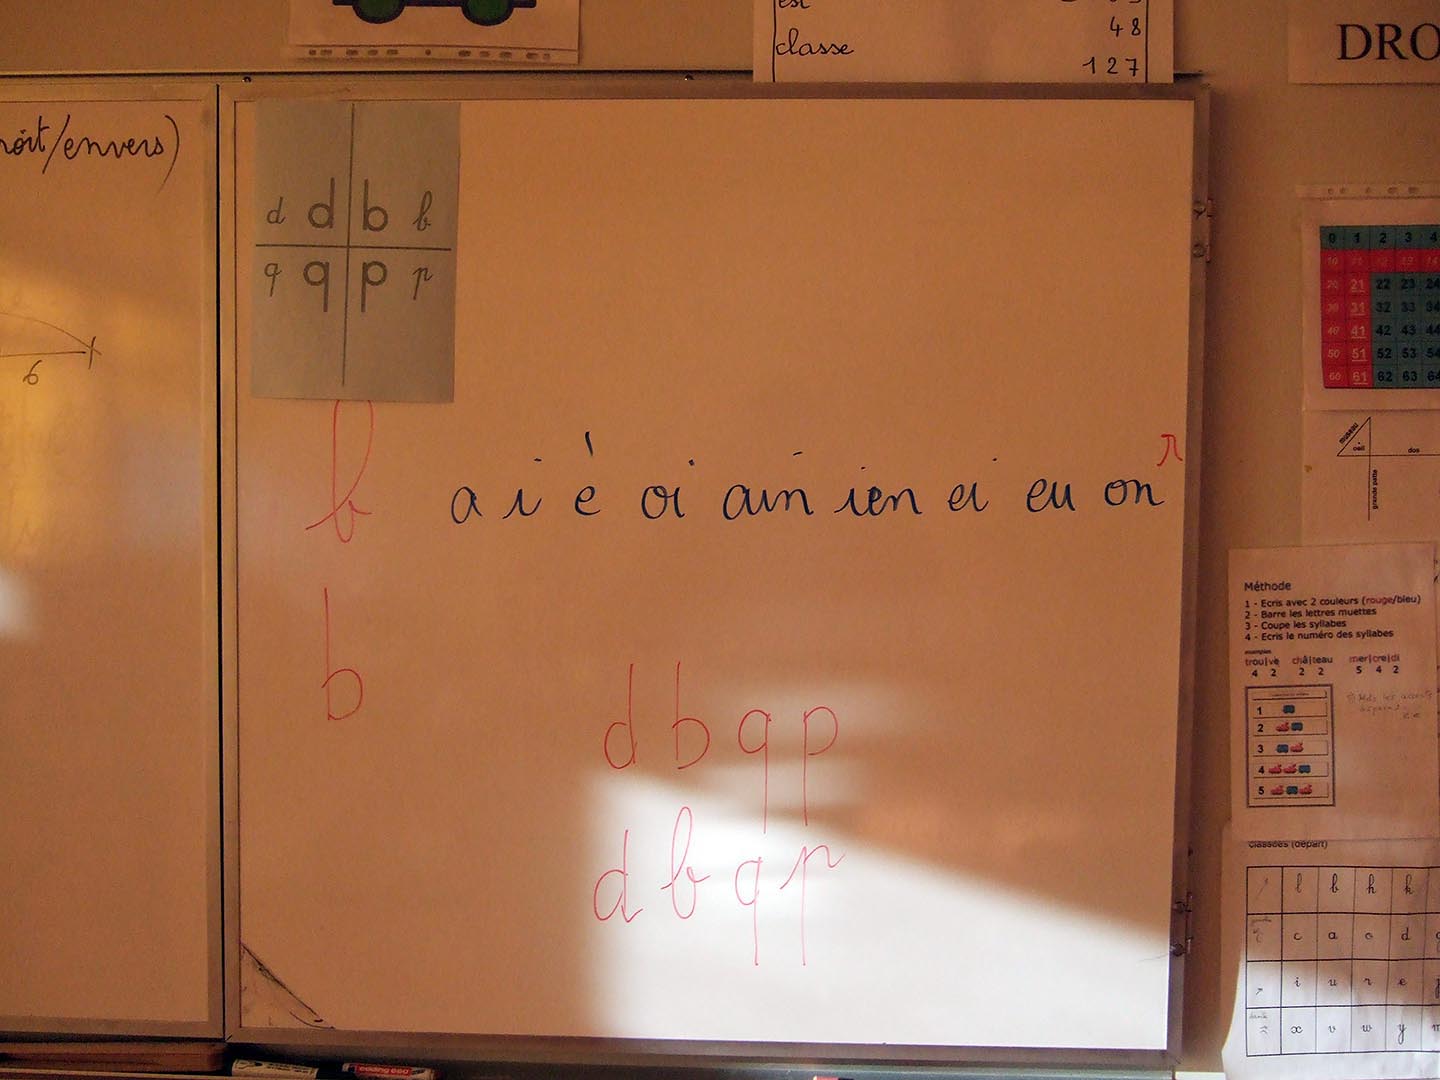 est
classe
48
127
DRO
roit/envers)
6
d d b b
q q p p
b a i è oi ain ien ei eu on r
b
d b q p
d b q p
0 1 2 3 4
10 11 12 13 14
20 21 22 23 24
30 31 32 33 34
40 41 42 43 44
50 51 52 53 54
60 61 62 63 64
museau
oeil
dos
grande patte
Méthode
1 - Ecris avec 2 couleurs (rouge/bleu)
2 - Barre les lettres muettes
3 - Coupe les syllabes
4 - Ecris le numéro des syllabes
exemples
trou|ve châ|teau mer|cre|di
4 2 2 2 5 4 2
1
2
3
4
5
classées (départ)
l b h k
c a o d
i u r e
x v w y
edding 660